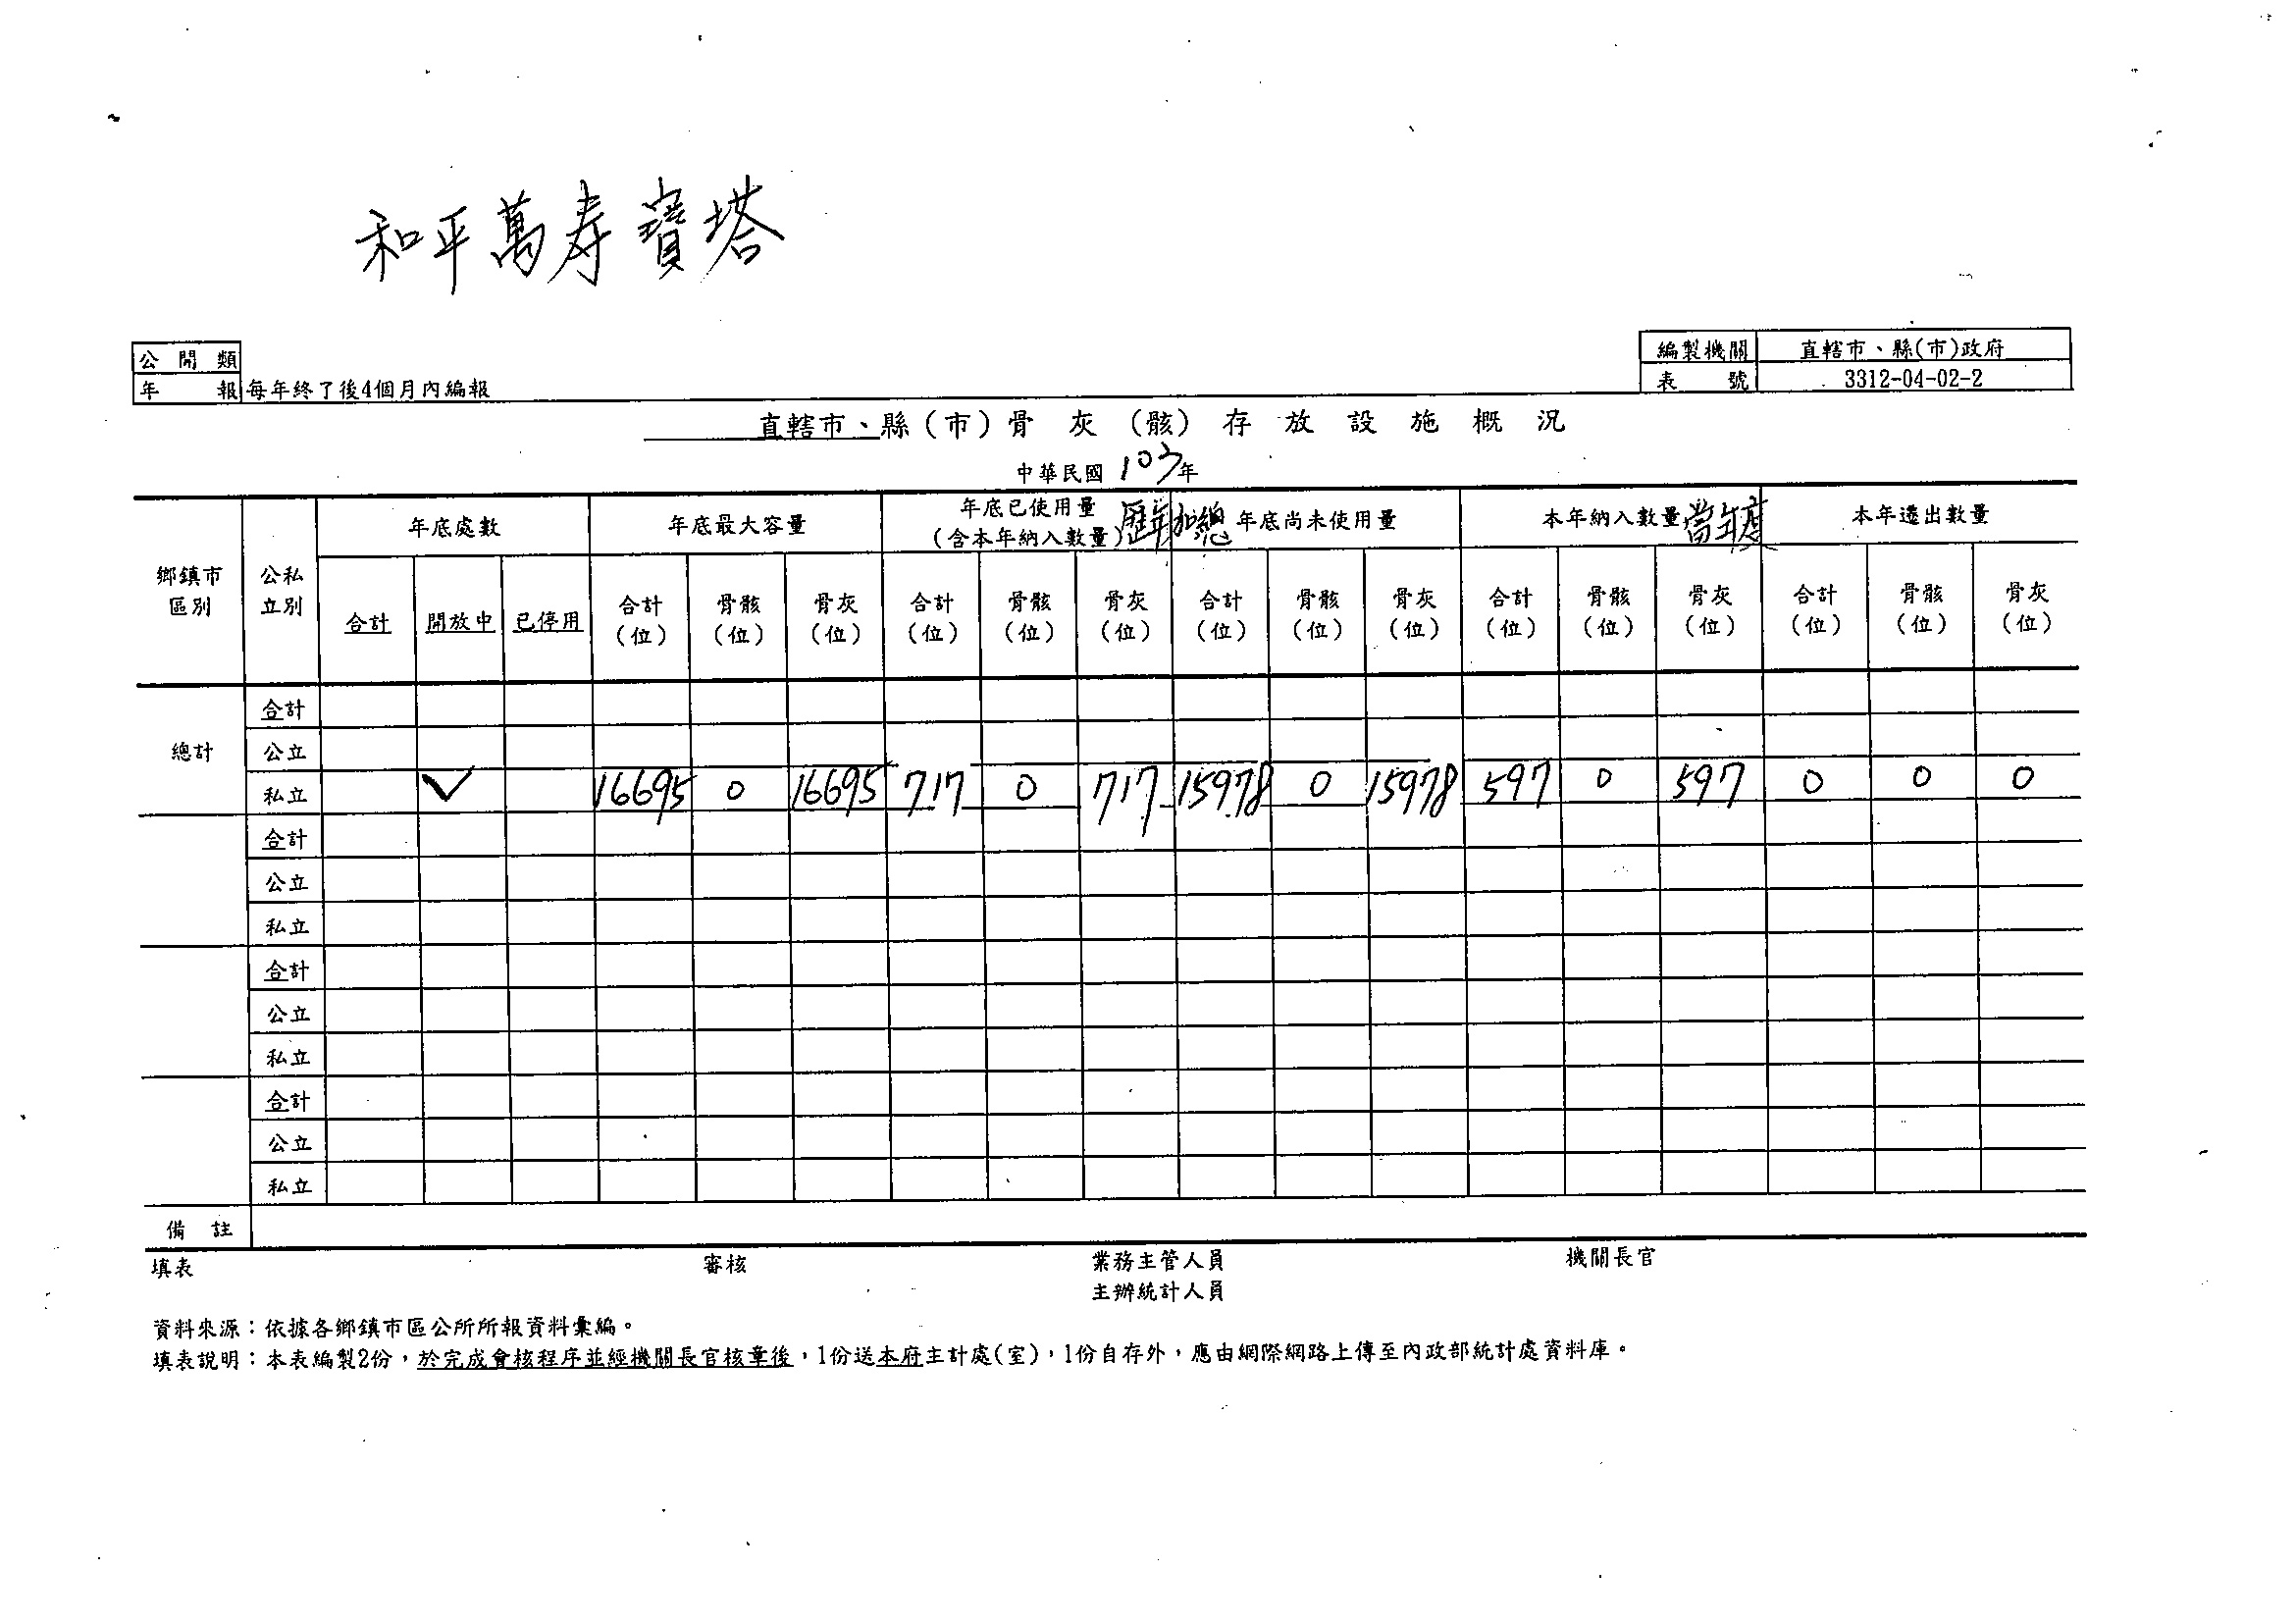 和平萬寿寳塔
公開類
年報 每年終了後4個月內編報
編製機關 直轄市、縣(市)政府
表號 3312-04-02-2
直轄市、縣(市)骨灰(骸)存放設施概況
中華民國 103 年
鄉鎮市區別 公私立別 年底處數 年底最大容量 年底已使用量(含本年納入數量) 歷年加總 年底尚未使用量 本年納入數量 當年度 本年遷出數量
合計 開放中 已停用 合計(位) 骨骸(位) 骨灰(位) 合計(位) 骨骸(位) 骨灰(位) 合計(位) 骨骸(位) 骨灰(位) 合計(位) 骨骸(位) 骨灰(位) 合計(位) 骨骸(位) 骨灰(位)
總計
合計
公立
私立 ✓ 16695 0 16695 717 0 717 15978 0 15978 597 0 597 0 0 0
合計
公立
私立
合計
公立
私立
合計
公立
私立
備註
填表 審核 業務主管人員 機關長官
主辦統計人員
資料來源：依據各鄉鎮市區公所所報資料彙編。
填表說明：本表編製2份，於完成會核程序並經機關長官核章後，1份送本府主計處(室)，1份自存外，應由網際網路上傳至內政部統計處資料庫。